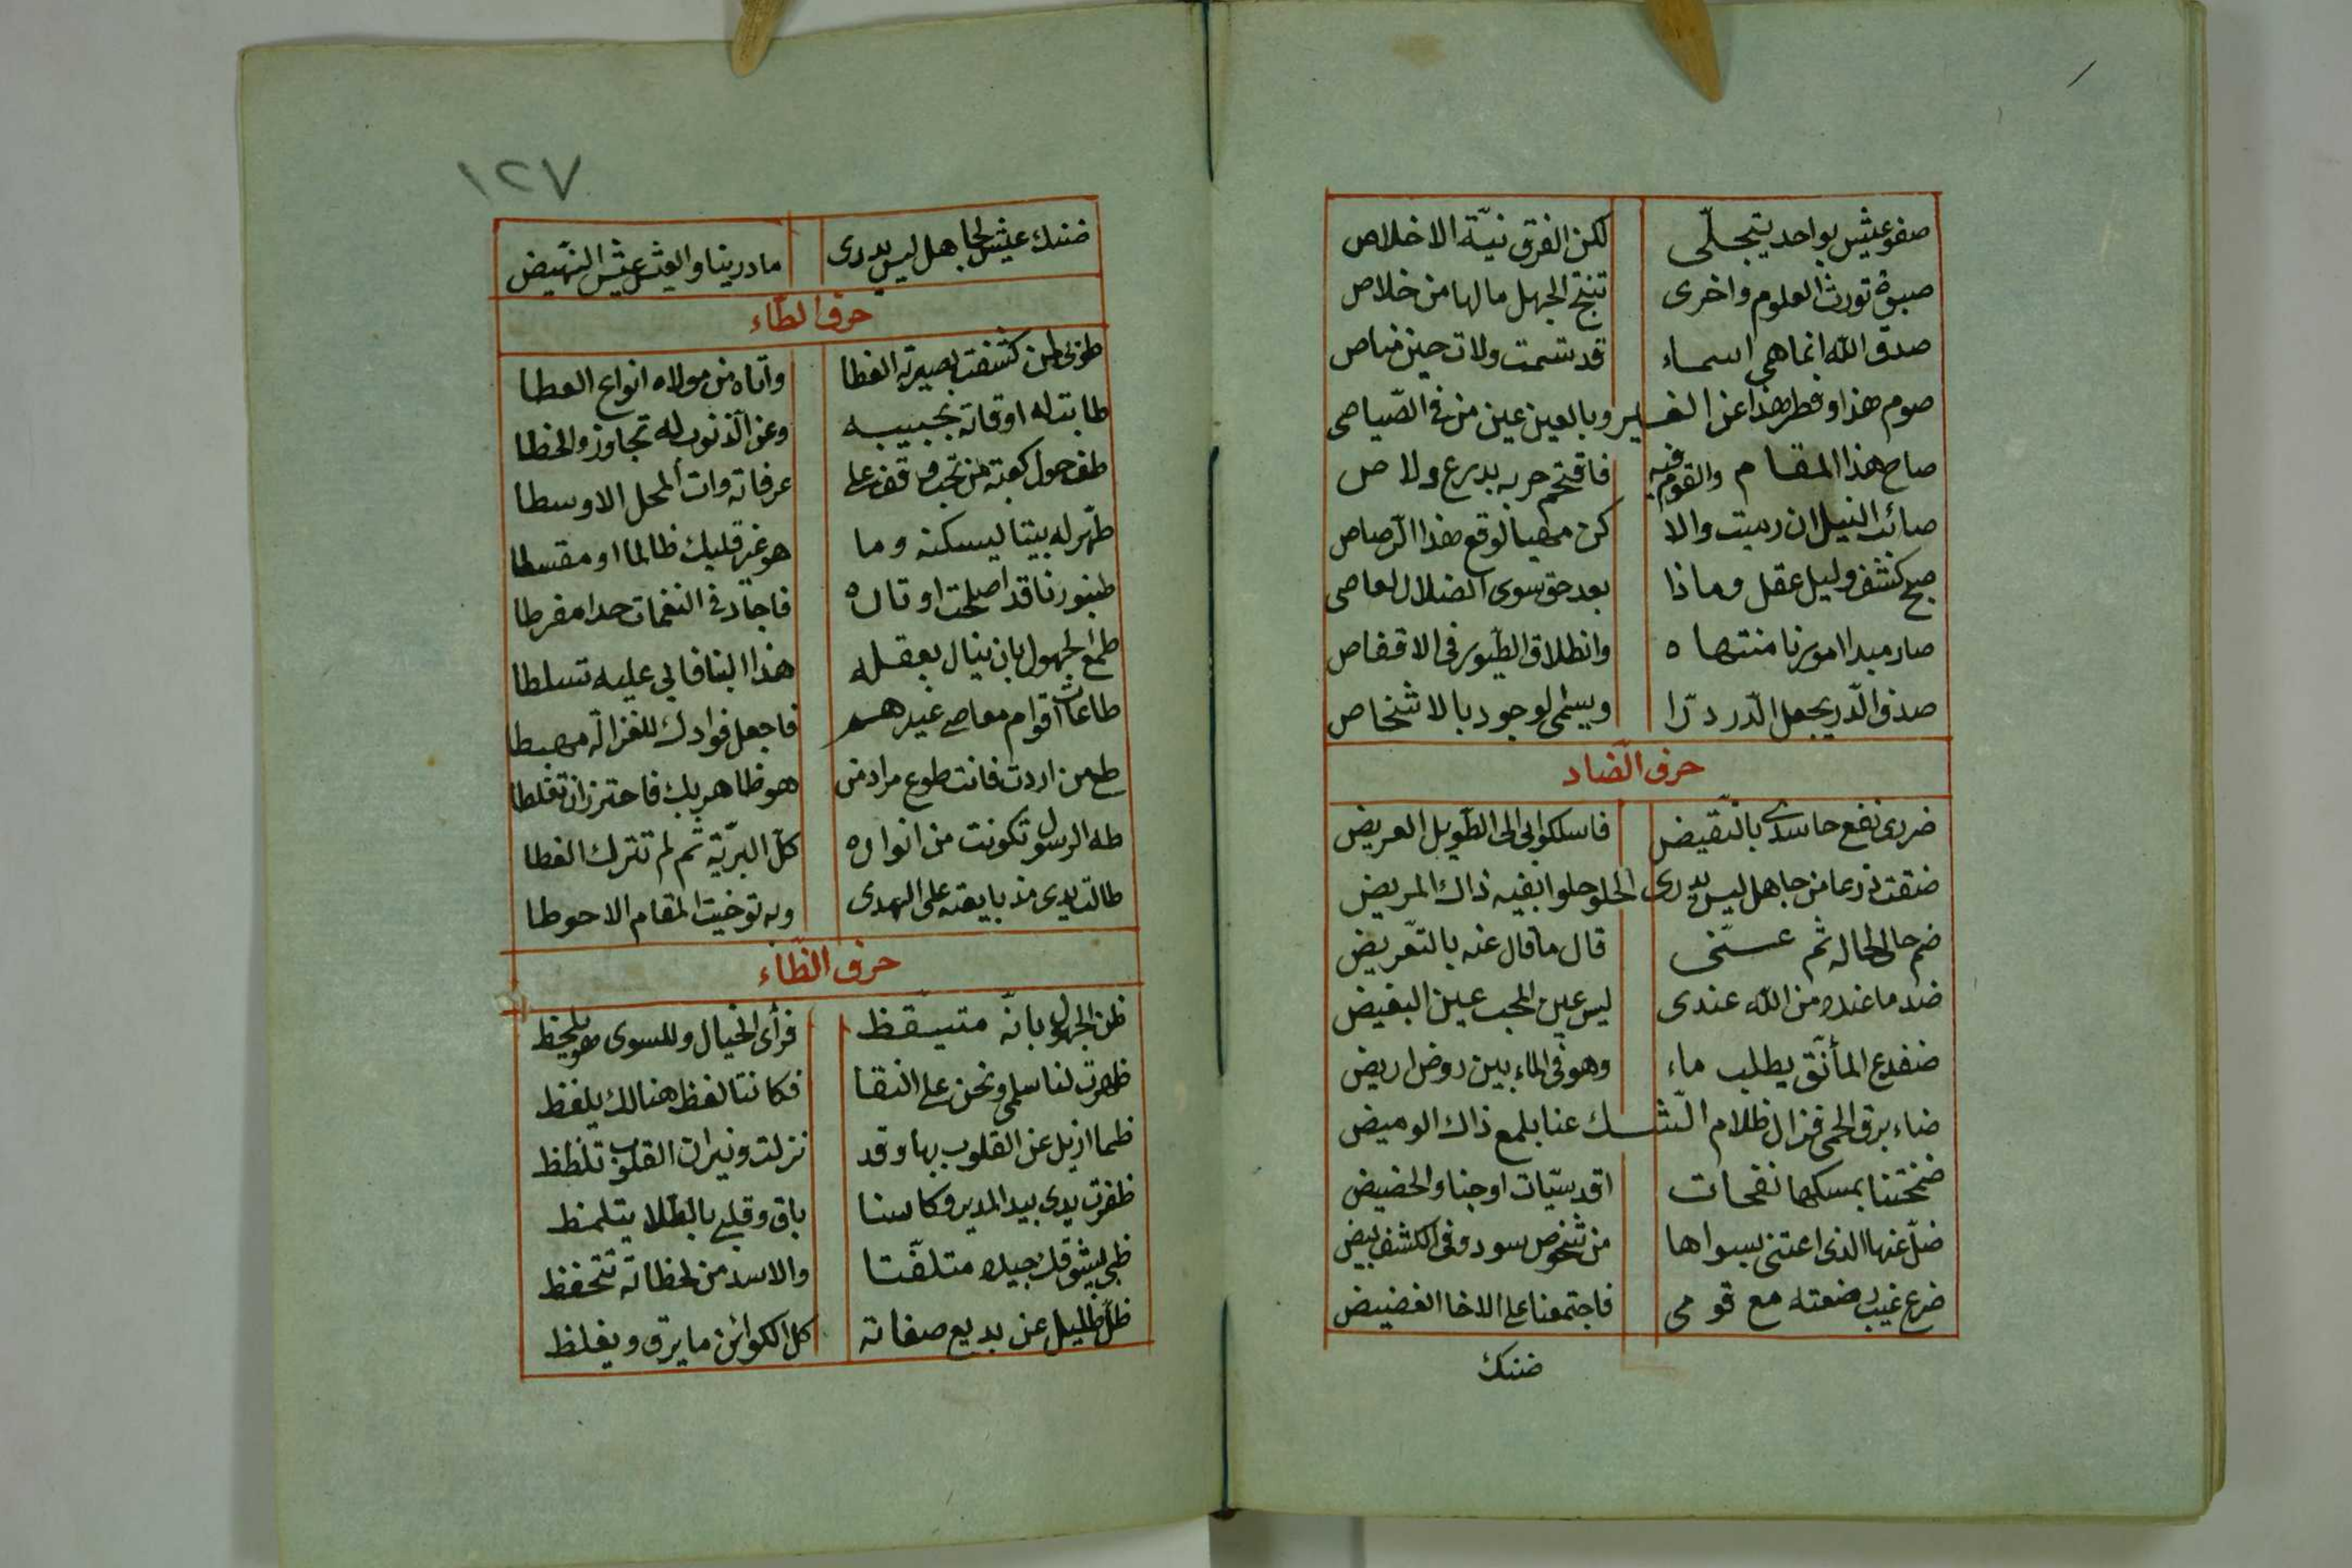 صفو عيش بواحد يتجلّى لكن الفرق نيّة الاخلاص
صبوة تورث العلوم واخرى تنتج الجهل مالها من خلاص
صدق الله انما هي اسماء قد تسمت ولات حين مناص
صوم هذا وفطر هذا عن الغير وبالعين عين من في الصّياصى
صاح هذا المقام والقوم فيه فاقتحم حربه بدرع ولاص
صائب النبل ان رميت والا كن مهيا لوقع هذا الرّصاص
صبح كشف وليل عقل وماذا بعد حق سوى الضلال العاصى
صار مبدا امورنا منتهاه وانطلاق الطّيور في الاقفاص
صدف الدّر يجعل الدّر درّا ويسمى الوجود بالاشخاص
حرف الضّاد
ضررى نفع حاسدى بالنّقيض فاسلكوا بى الى الطّويل العريض
ضقت ذرعا من جاهل ليس يدرى الحلو حلوا بفيه ذاك المريض
ضم حالى لحاله ثم عسّنى قال ما قال عنه بالتّعريض
ضد ما عنده من الله عندى ليس عين المحب عين البغيض
ضفدع المأنّق يطلب ماء وهو في الماء بين روض اريض
ضاء برق الحمى فزال ظلام الشّك عنا بلمع ذاك الوميض
ضمختنا بمسكها نفحات اقدسيّات اوجنا والحضيض
ضلّ عنها الذى اعتنى بسواها من شخوص سود وفى الكشف بيض
ضرع غيب رضعته مع قومى فاجتمعنا على الاخا الغضيض
ضنك
١٢٧
ضنك عيش الجاهل ليس يدرى ما درينا والعيش عيش النّهيض
حرف الطّاء
طوبى لمن كشفت بصيرته الغطا وآتاه من مولاه انواع العطا
طابت له اوقاته بحبيبه وعن الذّنوب له تجاوز والخطا
طف حول كعبة من تحب وقف على عرفاته وات المحل الاوسطا
طهّر له بيتا ليسكنه وما هو غير قلبك ظالما او مقسطا
طنبورنا قد اصلحت اوتاره فاجاد في النغمات حدا مفرطا
طمع الجهول بان ينال بعقله هذا البنا فابى عليه تسلطا
طاعات اقوام معاصى غيرهم فاجعل فوادك للغزالة مهبطا
طع من اردت فانت طوع مراد من هو ظاهر بك فاحترز ان تغلطا
طه الرسول تكونت من انواره كلّ البريّة ثم لم تترك الغطا
طالت يدى مذ بايعته على الهدى وبه توخيت المقام الاحوطا
حرف الظّاء
ظن الجهول بانّه متيّقظ فرأى الخيال وللسوى هو يلحظ
ظهرت لنا سلمى ونحن على النقا فكاننا لفظ هنالك يلفظ
ظما ازيل عن القلوب بها وقد نزلت ونيران القلوب تلظظ
ظفرت يدى بيد المدير وكاسنا باق وقلبى بالطّلا يتلمظ
ظبى يشوقك جيده متلفّتا والاسد من لحظاته تتحفظ
ظلّ ظليل عن بديع صفاته كل الكوائن ما يرق ويغلظ